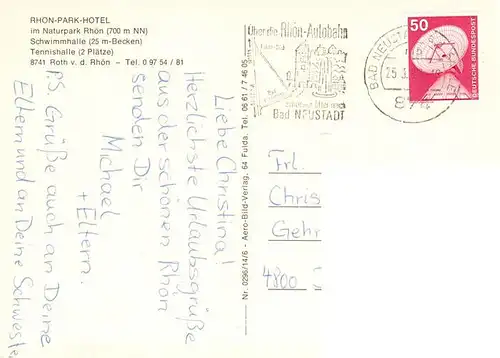 RHÖN-PARK-HOTEL
im Naturpark Rhön (700 m NN)
Schwimmhalle (25 m-Becken)
Tennishalle (2 Plätze)
8741 Roth v. d. Rhön - Tel. 0 97 54 / 81
Liebe Christina!
Herzlichste Urlaubsgrüße
aus der schönen Rhön
senden Dir
Michael
+ Eltern.
P.S. Grüße auch an Deine
Eltern und an Deine Schwester
Nr. 0296/14/6 - Aero-Bild-Verlag, 64 Fulda, Tel. 06 61 / 7 46 05
Über die Rhön-Autobahn
Bad NEUSTADT
BAD NEUSTADT
25.3.
874
50
DEUTSCHE BUNDESPOST
Frl.
Chris
Gehr
4800